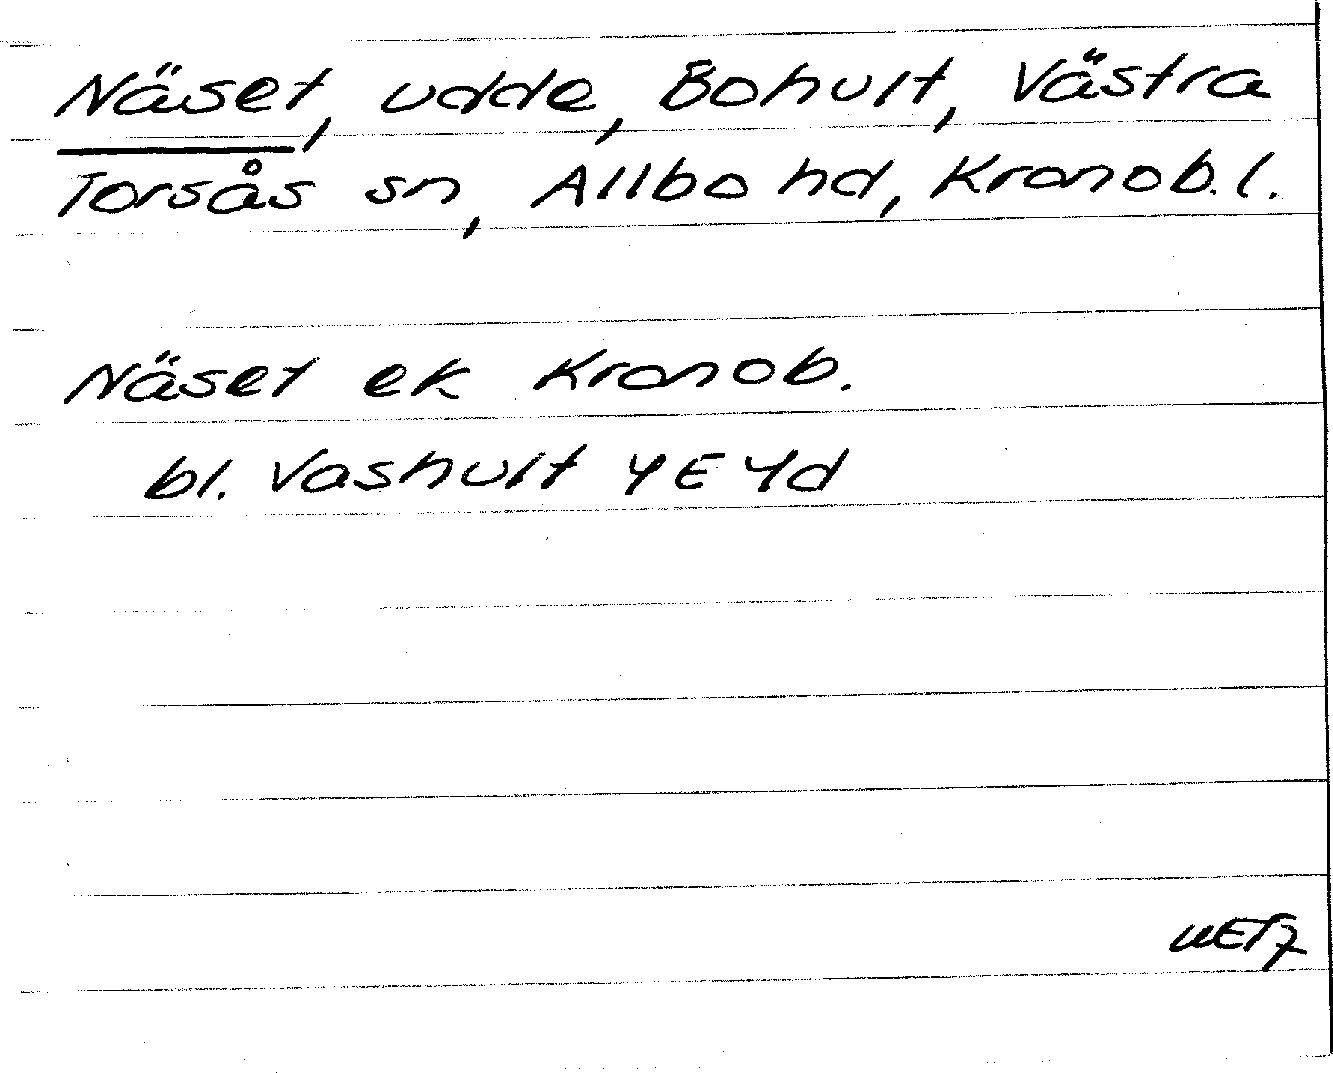 Näset, udde, Bohult, Västra
Torsås sn, Allbo hd, Kronob. l.
Näset ek Kronob.
bl. Vashult 4E4d